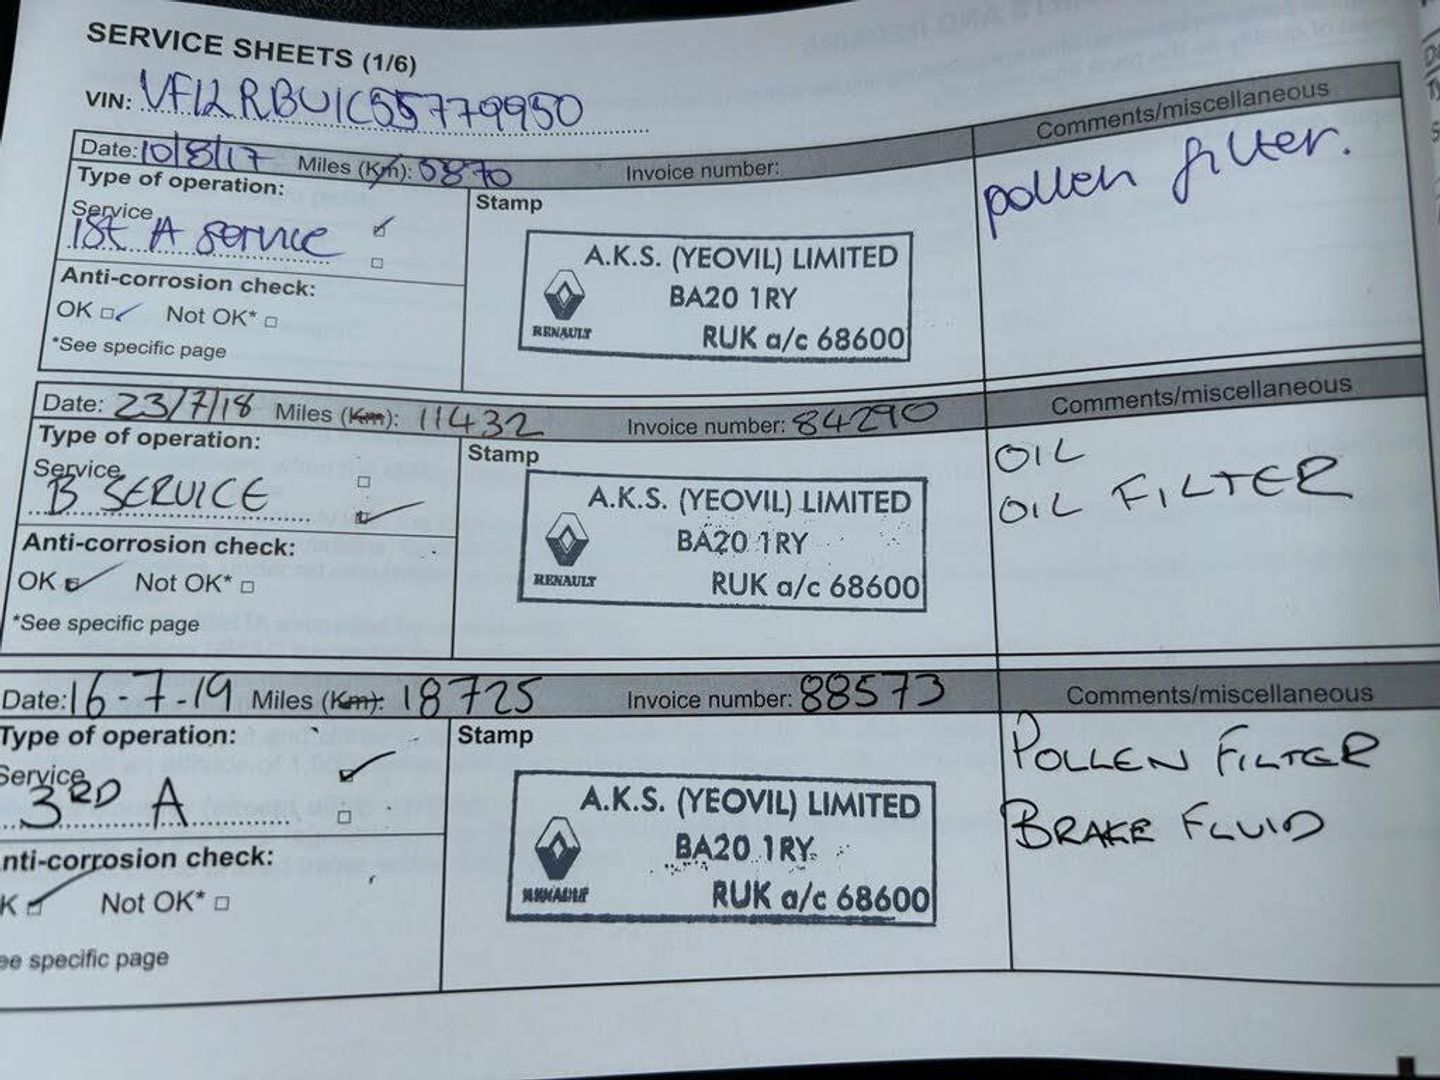 SERVICE SHEETS (1/6)
VIN: VF12RBU1C55779950
Date: 10/8/17 Miles (Km): 5870 Invoice number:
Comments/miscellaneous
Type of operation:
Service
1st A service
Anti-corrosion check:
OK Not OK*
*See specific page
Stamp
A.K.S. (YEOVIL) LIMITED
BA20 1RY
RENAULT
RUK a/c 68600
pollen filter.
Date: 23/7/18 Miles (Km): 11432 Invoice number: 84290
Comments/miscellaneous
Type of operation:
Service
B SERVICE
Anti-corrosion check:
OK Not OK*
*See specific page
Stamp
A.K.S. (YEOVIL) LIMITED
BA20 1RY
RENAULT
RUK a/c 68600
OIL
OIL FILTER
Date: 16-7-19 Miles (Km): 18725 Invoice number: 88573
Comments/miscellaneous
Type of operation:
Service
3RD A
nti-corrosion check:
K Not OK*
ee specific page
Stamp
A.K.S. (YEOVIL) LIMITED
BA20 1RY
RENAULT
RUK a/c 68600
POLLEN FILTER
BRAKE FLUID